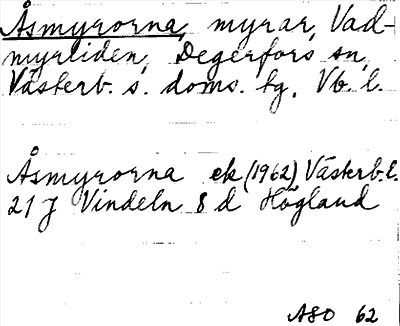 Åsmyrorna, myrar, Vad-
myrliden, Degerfors sn,
Västerb. s. doms. tg, Vb. l.
Åsmyrorna ek (1962) Västerb. l.
21 J Vindeln 8 d Högland
ASO 62